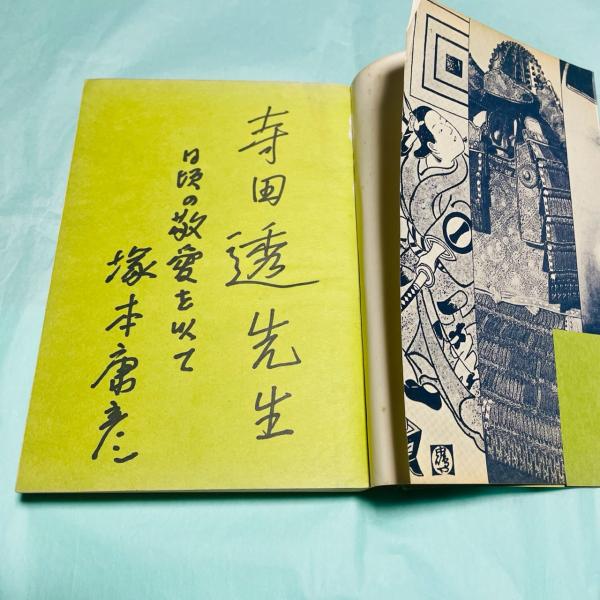 寺田透先生
日頃の敬愛を以て
塚本康彦